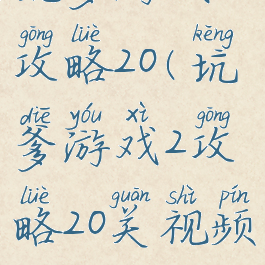 gōng lüè kēng
攻略20(坑
diē yóu xì gōng
爹游戏2攻
lüè guān shì pín
略20关视频